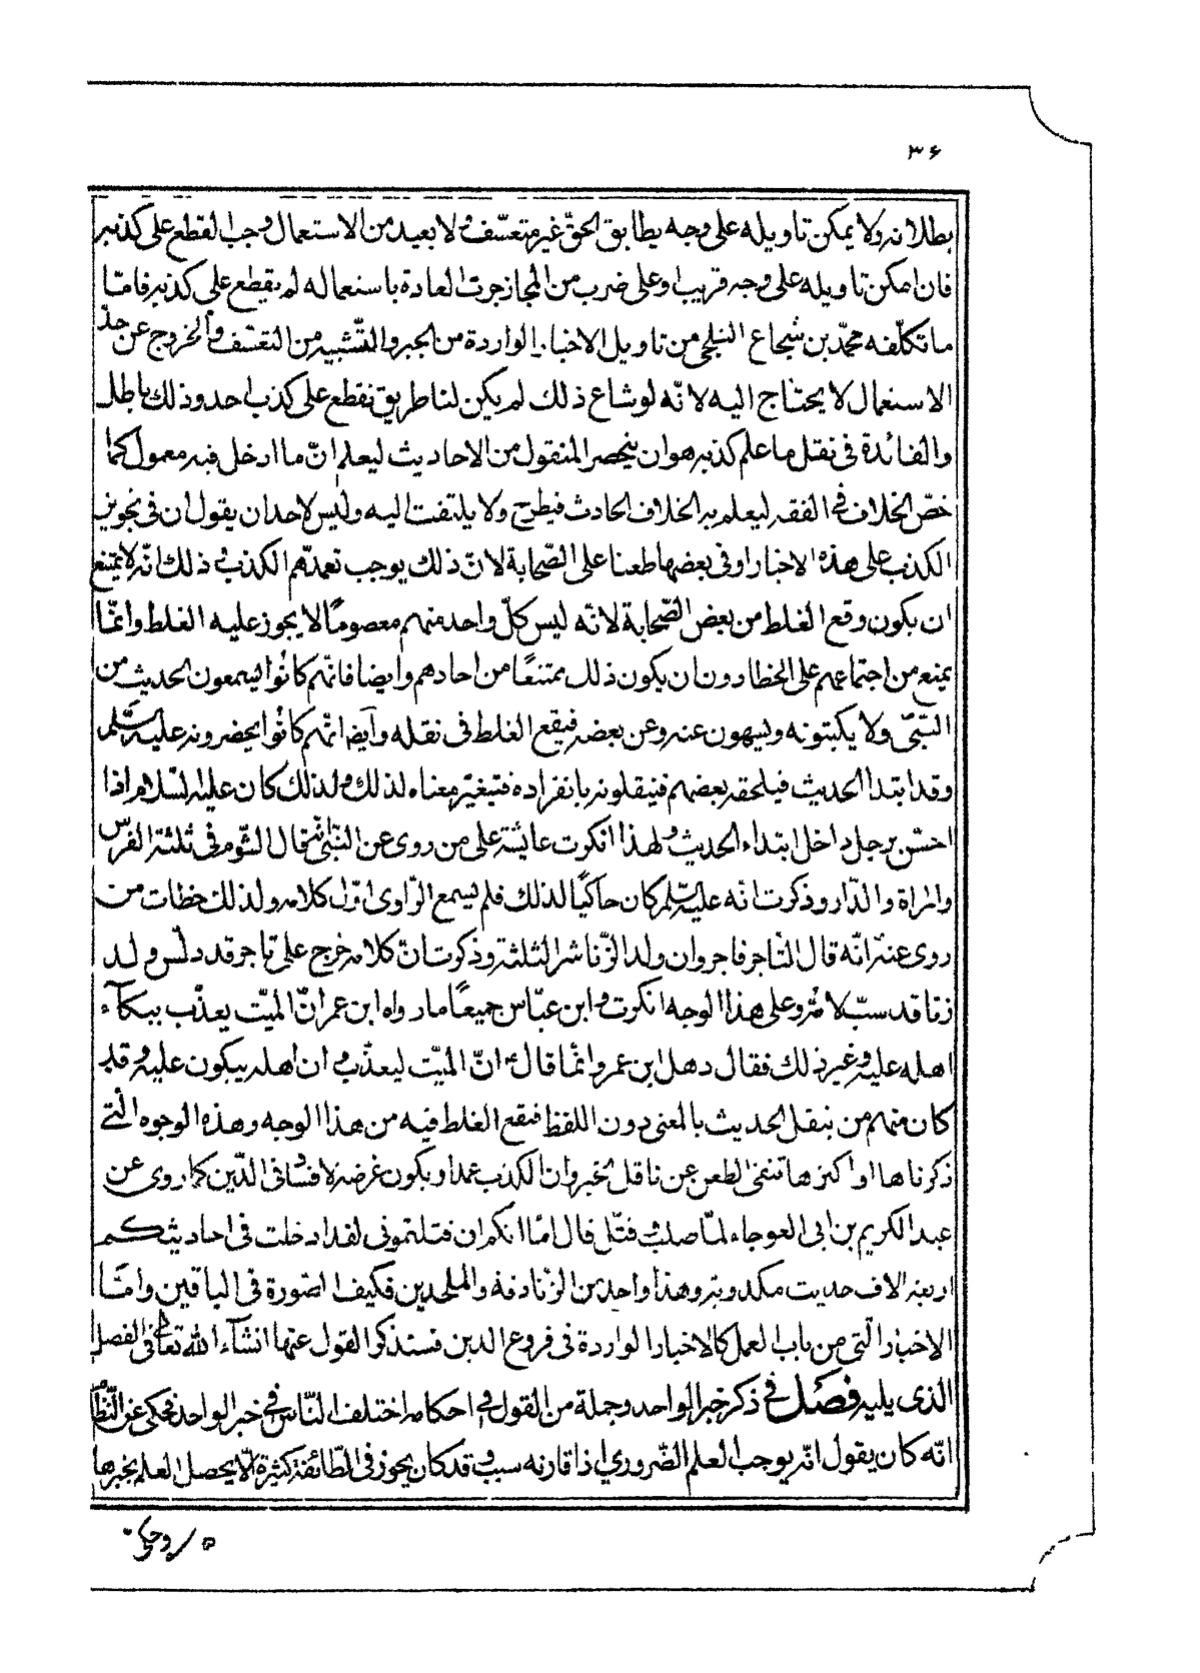 ۳۶
بطلانه ولا يمكن تاويله على وجه يطابق الحقّ غير متعسّف ولا بعيد من الاستعمال وجب القطع على كذبه
فان امكن تاويله على وجه قريب او على ضرب من المجاز جرت العادة باستعماله لم يقطع على كذبه فامّا
ما تكلّفه محمّد بن شجاع الثلجى من تاويل الاخبار الواردة من الجبر والتّشبيه من التعسّف والخروج عن حدّ
الاستعمال لا يحتاج اليه لانّه لو شاع ذلك لم يكن لنا طريق نقطع على كذب احد وذلك باطل
والفائدة فى نقل ما علم كذبه هو ان ينحصر المنقول من الاحاديث ليعلم انّ ما ادخل فيه معمول كما
خصّ الخلاف فى الفقه ليعلم به الخلاف الحادث فيطرح ولا يلتفت اليه وليس لاحد ان يقول ان فى تجويز
الكذب على هذه الاخبار او فى بعضها طعنا على الصّحابة لانّ ذلك يوجب تعمدّهم الكذب وذلك انّه لا يمتنع
ان يكون وقع الغلط من بعض الصّحابة لانّه ليس كلّ واحد منهم معصومًا لا يجوز عليه الغلط وانّما
يمنع من اجتماعهم على الخطا دون ان يكون ذلك ممتنعًا من احادهم وايضا فانّهم كانوا يسمعون الحديث من
النّبىّ ولا يكتبونه ويسهون عنه وعن بعضه فيقع الغلط فى نقله وايضا انّهم كانوا يحضرونه عليه السّلم
وقد ابتدا الحديث فيلحقه بعضهم فينقلونه بانفراده فتيغيّر معناه لذلك ولذلك كان عليه السّلام اذا
احسّ برجل داخل ابتداء الحديث ولهذا انكرت عايشة على من روى عن النّبىّ انّه قال الشّوم فى ثلثة الفرس
والمراة والدّار وذكرت انّه عليه السّلم كان حاكيًا لذلك فلم يسمع الرّاوى اوّل كلامه ولذلك خطات من
روى عنه انّه قال التّاجر فاجر وان ولد الزّنا شر الثلثة وذكرت انّ كلامه خرج على تاجر قد دلّس وولد
زنا قد سبّ لامّه وعلى هذا الوجه انكرت وابن عبّاس جميعًا ما رواه ابن عمر انّ الميّت يعذّب ببكآء
اهله عليه وغير ذلك فقال دهل ابن عمر وانّما قال ع انّ الميّت ليعذّب وان اهله يبكون عليه وقد
كان منهم من ينقل الحديث بالمعنى دون اللفظ فيقع الغلط فيه من هذا الوجه وهذه الوجوه الّتى
ذكرناها او اكثرها تنفى الطعن عن ناقل الخبر وان الكذب عمدا ويكون غرضه الافشا فى الدّين كما روى عن
عبد الكريم بن ابى العوجاء لمّا صلب وقتل قال امّا انكم ان قتلتمونى لقد ادخلت فى احاديثكم
اربعة الاف حديث مكذوبة وهذا واحد من الزّنادقة والملحدين فكيف الصّورة فى الباقين وامّا
الاخبار الّتى من باب العمل كالاخبار الواردة فى فروع الدين فسنذكر القول عنها انشآء الله تعالى فى الفصل
الذى يليه فصل فى ذكر خبر الواحد وجملة من القول فى احكامه اختلف النّاس فى خبر الواحد فحكى عن النّظّام
انّه كان يقول انّه يوجب العلم الضّرورىّ اذا قارنه سبب وقد كان يجوز فى الطّائفة كثيرة الّا يحصل العلم بخبرها
وحكى